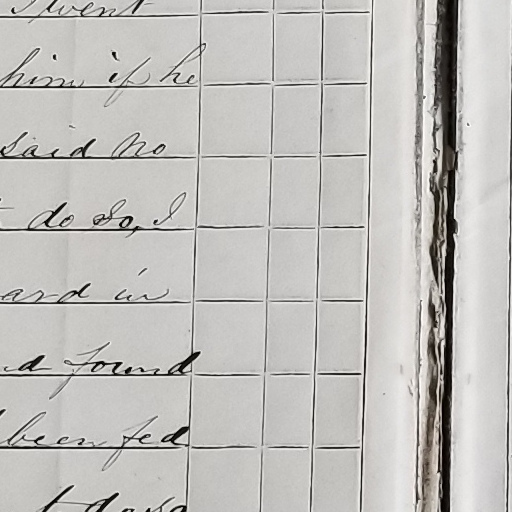 I went
him if he
said no
do so, I
ard in
found
been fed